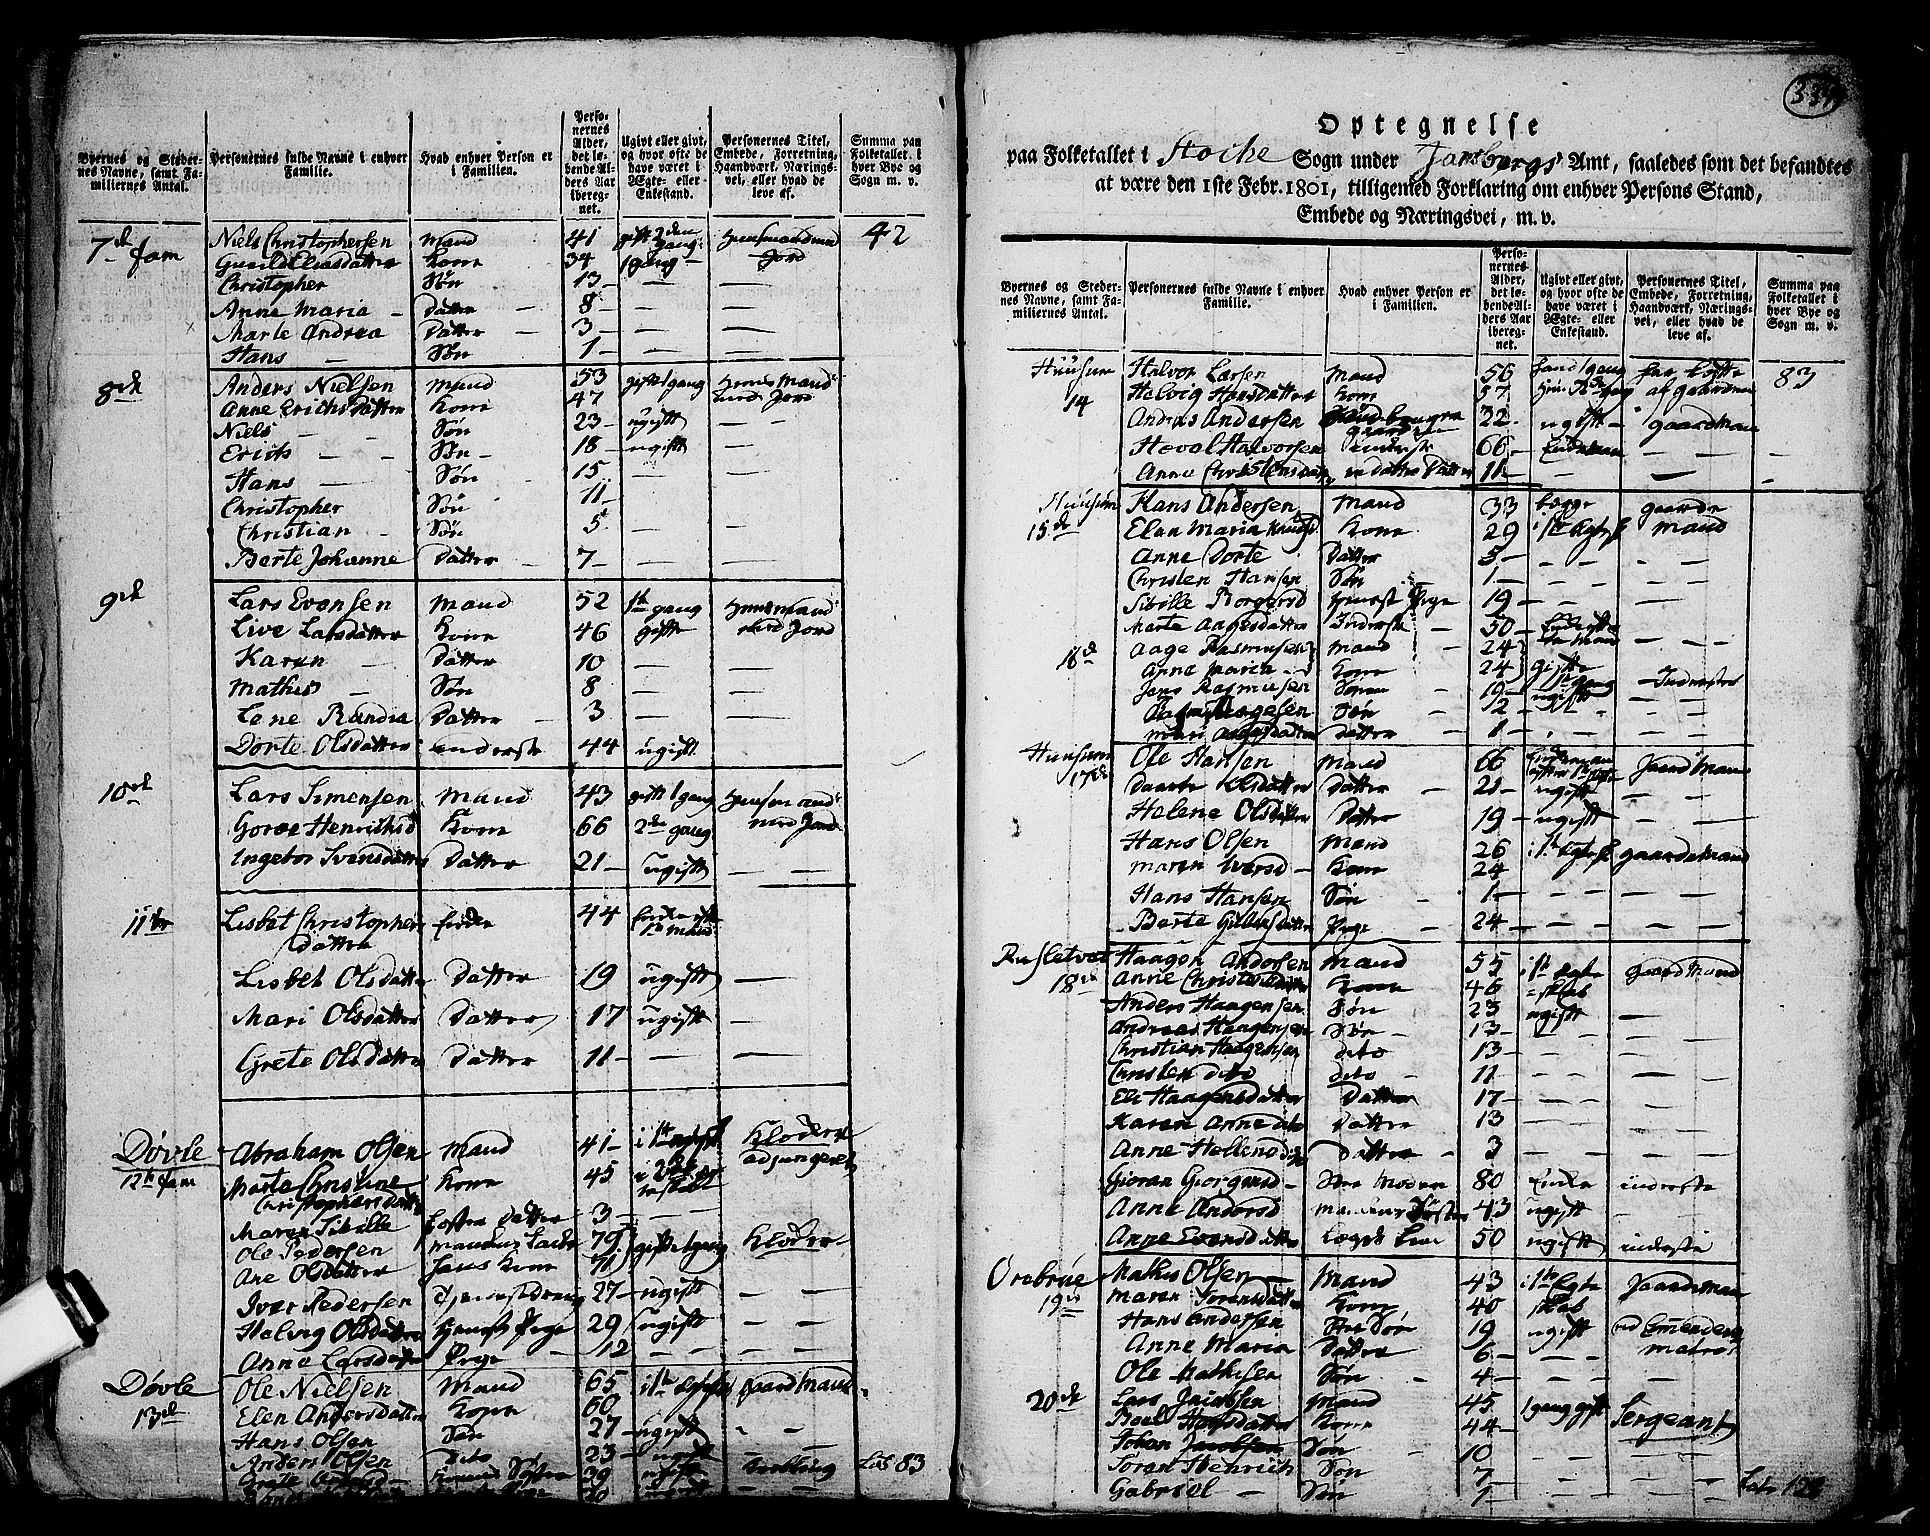 Byernes og Steder-
nes Navne, samt Fa-
miliernes Antal.
Personernes fulde Navne i enhver
Familie.
Hvad enhver Person er
i Familien.
Perso-
nernes
Alder,
det lø-
bende Al-
ders Aar
ibereg-
net.
Ugivt eller givt,
og hvor ofte de
have været i
Ægte- eller
Enkestand.
Personernes Titel,
Embede, Forretning,
Haandværk, Nærings-
vei, eller hvad de
leve af.
Summa paa
Folketallet i
hver Bye og
Sogn m. v.
7de fam Niels Christophersen Mand 41 gift 2den gang Huusmand med Jord 42
Gunild Eliasdatter Kone 34 1 gang —
Christopher Søn 13 — —
Anne Maria — Datter — 8 — —
Marte Andrea Datter — 3 — —
Hans — Søn 1 — —
8de Anders Nielsen Mand 53 gift 1 gang Huus Mand med Jord
Anne Erichsdatter Kone 47
Niels — — Søn 23 — ugift —
Erich — — Søn — 18 — ugift —
Hans — Søn 15 — —
Christopher Søn 11 — —
Christian — Søn 5 — —
Berte Johanne Datter — 7 — — —
9de Lars Evensen Mand 52 1st gang Huusmand
Live Larsdatter Kone 46 gifte med Jord
Karen — Datter 10 — —
Mathis — Søn 8 — —
Lene Randia Datter — 3 — —
Dorte Olsdatter inderste 44 ugift —
10de Lars Simensen Mand 43 gift 1 gang Huusmand
Goroe Henrichsd Kone 66 2de gang med Jord
Ingebor Svensdatter Datter 21 — ugift — —
11te Lisbet Christopher Enke 44 Enke efter
Datter 1st mand
Lisbet Olsdatter Datter 19 ugift —
Mari Olsdatter Datter 17 ugift —
Grete Olsdatter Datter 11 — — —
Døvle Abraham Olsen Mand 41 — i 1st Klocker
12te fam adjungeret
Marte Christine Kone 45 i 2det
Christophersdatter
Maren Sibille Foster Datter 3 — —
Ole Pedersen 79 gifte 1 gang Klocker
Ane Olsdatter Kone 71
Iver Pedersen Tjenestdreng 27 — ugift — —
Helvig Olsdatter Tjenest Pige 29 ugift — —
Anne Larsdatter Pige — 12 — — —
Døvle Ole Nielsen Mand 65 i 1st Gaard Mand
13de Elen Andersdatter Kone 60
Hans Olsen Søn 27 — ugift — —
Anders Olsen Dito 23 — ugift —
Grete Søster 39 ugift Lat 83
339
Optegnelse
paa Folketallet i Stocke Sogn under Jarlsbergs Amt, saaledes som det befandtes
at være den 1ste Febr. 1801, tilligemed Forklaring om enhver Persons Stand,
Embede og Næringsvei, m. v.
Byernes og Steder-
nes Navne, samt Fa-
miliernes Antal.
Personernes fulde Navne i enhver
Familie.
Hvad enhver Person er
i Familien.
Perso-
nernes
Alder,
det lø-
bende Al-
ders Aar
iberegnet.
Ugivt eller givt,
og hvor ofte de
have været i
Ægte- eller
Enkestand.
Personernes Titel,
Embede, Forretning,
Haandværk, Nærings-
vei, eller hvad de
leve af.
Summa paa
Folketallet i
hver Bye og
Sogn m. v.
Huusum Halvor Larsen Mand 56 83
14 Helvig Hansdatter Kone 57 af gaarden
Anders Andersen 32 — ugift — gaardman
Hovel Halvorsen Inderste 66 — Enkeman
Anne Christensdatter en datters Datter 11 — — — —
Huusum Hans Andersen Mand 33 begge gaard
15de Elen Maria Knudsd Kone 29 i 1st Egtesk mand
Anne Dorte Datter 5 — — —
Christen Hansen Søn 1 — — —
Sibille Borgersd tienest Pige 19 — — —
Marte Aagesdatter Inderste — 50 — Enke efter 1ste Mand —
16de Aage Rasmusen Mand 24 gifte
Anne Maria — Kone 24 1st gang
Jens Rasmusen Søn 19 — ugift — Inderster
Aagesen Søn 2 — —
Mari Aagesdatter Datter — 1 — — —
Huusum Ole Hansen Mand 66 Enkeman Gaard Mand
17de Daarte Olsdatter Datter — 21 — ugift — —
Helene Olsdatter Datter 19 — ugift — —
Hans Olsen Mand 26 i 1st Egtesk gaardmand
Maren Iversd — Kone 24
Hans Hansen Søn 1 — — —
Berte Gulliksdatter Pige — 24 — — —
Rusletvet Haagen Andersen Mand 55 i 1st Egte gaard Mand
18de Anne Christensdatter Kone 46 = skab
Anders Haagensen Søn 23 ugift —
Andreas Haagensen Søn — 13 — — —
Christian Haagensen dito 13 — — —
Christen dito dito — 11 — — —
Eli Haagensdatter Datter 17 — — —
Karen Anne dito Datter 13 — —
Anne Hellene dito Datter — 3 — —
Gioran Giorgensd — Moder 80 Enke inderste
Anne Andersd Mandens Søster 43 ugift —
Anne Evensdatter Lægds Lem 50 ugift inderste
Orebroe Mathis Olsen — Mand 43 i 1ste Egte Gaardman
19de Maren Sorensdatter Kone 40 skab
Hans Andersen Sted Søn 19 ugift
Anne Maria Datter 6 — — — matros
Ole Mathisen Søn — 4 — — —
20de Lars Jacobsen Mand 45 1 gang gift Sergeant
Boel Hansdatter Kone 44 —
Johan Jacobsen Søn — 10 — —
Soren Henrich Søn 7 — —
Gabriel — Søn 1 — —
Lat 123